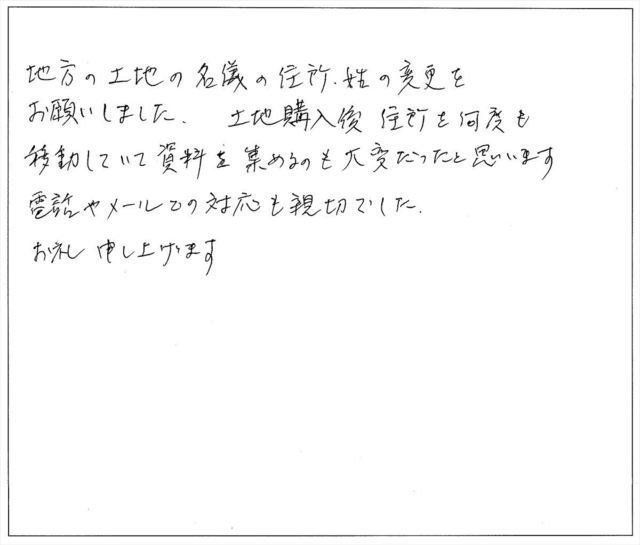 地方の土地の名儀の住所、姓の変更を
お願いしました。 土地購入後 住所を何度も
移動していて資料を集めるのも大変だったと思います
電話やメールでの対応も親切でした。
お礼 申し上げます